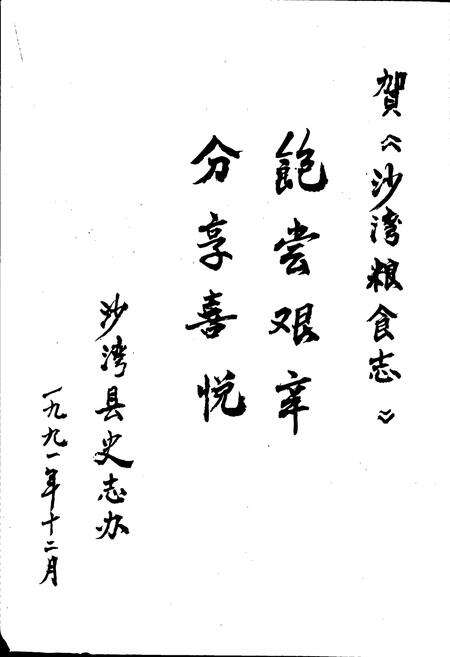 賀《沙湾粮食志》
飽尝艰辛
分享喜悦
沙湾县史志办
一九九一年十二月